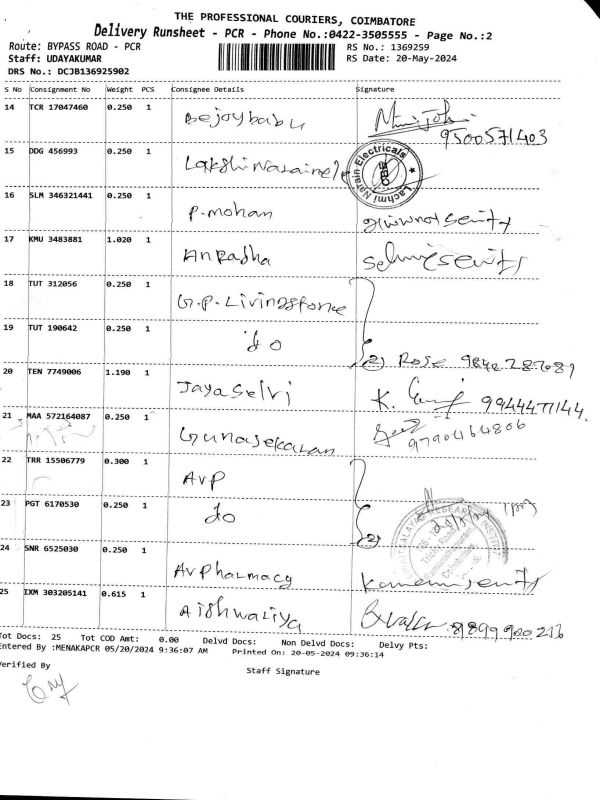 THE PROFESSIONAL COURIERS, COIMBATORE
Delivery Runsheet - PCR - Phone No.:0422-3505555 - Page No.:2
Route: BYPASS ROAD - PCR RS No.: 1369259
Staff: UDAYAKUMAR RS Date: 20-May-2024
DRS No.: DCJB136925902
S No Consignment No Weight PCS Consignee Details Signature
14 TCR 17047460 0.250 1 Bejoybabu
9500571403
15 DDG 456993 0.250 1 Lachmi Narain Electricals
16 SLM 346321441 0.250 1 P. mohan
17 KMU 3483881 1.020 1 Anradha
18 TUT 312056 0.250 1 G.P. Livingstone
19 TUT 190642 0.250 1 do
(2) Rose
20 TEN 7749006 1.190 1 Jayaselvi K.
21 MAA 572164087 0.250 1 Gunasekaran 9790464806
22 TRR 15506779 0.300 1 AVP
23 PGT 6170530 0.250 1 do (2)
24 SNR 6525030 0.250 1 AVPharmacy
25 IXM 303205141 0.615 1 Aishwariya
Tot Docs: 25 Tot COD Amt: 0.00 Delvd Docs: Non Delvd Docs: Delvy Pts:
Entered By :MENAKAPCR 05/20/2024 9:36:07 AM Printed On: 20-05-2024 09:36:14
Verified By Staff Signature